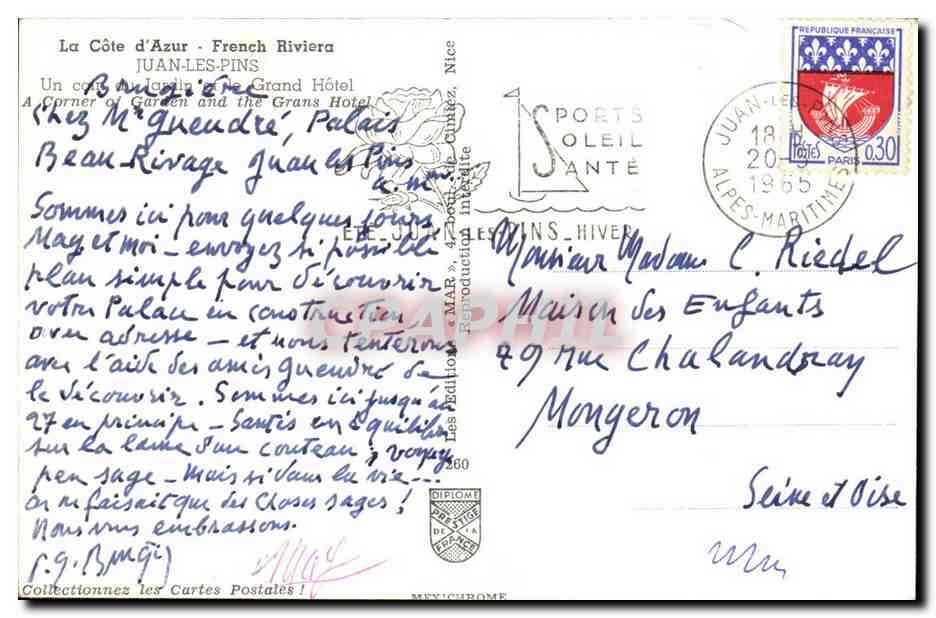 La Côte d'Azur - French Riviera
JUAN-LES-PINS
Un coin du Jardin et le Grand Hôtel
A Corner of Garden and the Grans Hotel
Chez Mr Guendré Palais
Beau-Rivage Juan les Pins
a. mmes
Sommes ici pour quelques jours
May et moi - envoyez si possible
plan simple pour découvrir
votre Palau en construction,
avec adresse - et nous tenterons
avec l'aide des amis Guendré de
le découvrir. Sommes ici jusqu'au
27 en principe - Santés en équilibre
sur la lame d'un couteau; voyage
peu sage - Mais si dans la vie...
on ne faisait que des choses sages!
Nous vous embrassons.
May
Collectionnez les Cartes Postales !
Les Editions « MAR », 4, boul. de Cimiez, Nice
Reproduction interdite
260
DIPLOME
PRESTIGE
DE LA
FRANCE
MEX'CHROME
SPORTS
SOLEIL
SANTÉ
ÉTÉ - JUAN-LES-PINS - HIVER
JUAN-LES-PINS
18 H
20-9
1965
ALPES-MARITIMES
REPUBLIQUE FRANÇAISE
POSTES PARIS 0,30
Monsieur Madame C. Riedel
Maison des Enfants
79 rue Chalandray
Mongeron
Seine et Oise
CPAPHIL